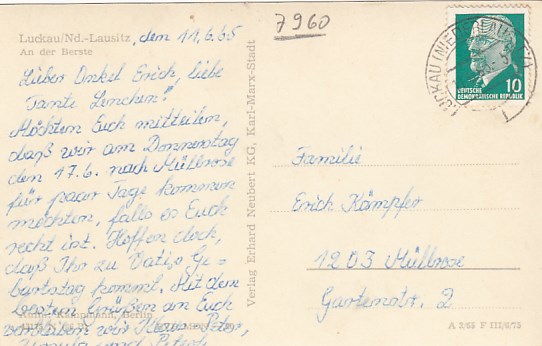 7960
Luckau/Nd.-Lausitz, den 11.6.65
An der Berste
Lieber Onkel Erich, liebe
Tante Lenchen!
Möchten Euch mitteilen,
daß wir am Donnerstag
den 17.6. nach Müllrose
für paar Tage kommen
möchten, falls es Euch
recht ist. Hoffen doch,
daß Ihr zu Vatis Ge-
burtstag kommt. Mit den
besten Grüßen an Euch
verbleiben wir Peter,
und
Berlin
Verlag Erhard Neubert KG, Karl-Marx-Stadt
LUCKAU
10
DEUTSCHE
DEMOKRATISCHE REPUBLIK
Familie
Erich Kämpfer
1203 Müllrose
Gartenstr. 2
A 2/63 F III/6/73